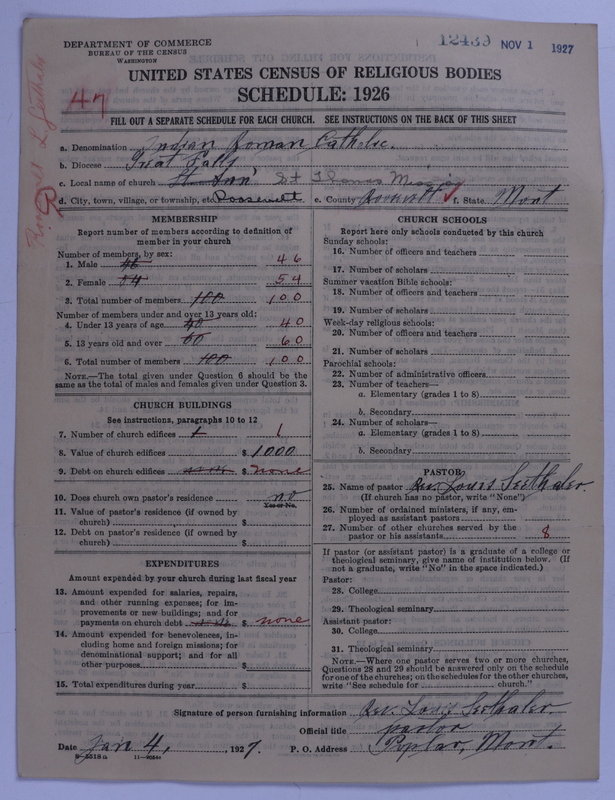 DEPARTMENT OF COMMERCE
BUREAU OF THE CENSUS
WASHINGTON
12439 NOV 1 1927
UNITED STATES CENSUS OF RELIGIOUS BODIES
SCHEDULE: 1926
47
FILL OUT A SEPARATE SCHEDULE FOR EACH CHURCH. SEE INSTRUCTIONS ON THE BACK OF THIS SHEET
a. Denomination Indian Roman Catholic.
b. Diocese Great Falls
c. Local name of church St. Ann St Thomas Mission
d. City, town, village, or township, etc. Roosevelt e. County Roosevelt f. State Mont
MEMBERSHIP
Report number of members according to definition of member in your church
Number of members, by sex:
1. Male 46 46
2. Female 54 54
3. Total number of members 100 100
Number of members under and over 13 years old:
4. Under 13 years of age 40 40
5. 13 years old and over 60 60
6. Total number of members 100 100
NOTE.—The total given under Question 6 should be the same as the total of males and females given under Question 3.
CHURCH BUILDINGS
See instructions, paragraphs 10 to 12
7. Number of church edifices 1 1
8. Value of church edifices $ 1000
9. Debt on church edifices $ none
10. Does church own pastor's residence no
Yes or No.
11. Value of pastor's residence (if owned by church) $
12. Debt on pastor's residence (if owned by church) $
EXPENDITURES
Amount expended by your church during last fiscal year
13. Amount expended for salaries, repairs, and other running expenses; for improvements or new buildings; and for payments on church debt $ none
14. Amount expended for benevolences, including home and foreign missions; for denominational support; and for all other purposes $
15. Total expenditures during year $
CHURCH SCHOOLS
Report here only schools conducted by this church
Sunday schools:
16. Number of officers and teachers
17. Number of scholars
Summer vacation Bible schools:
18. Number of officers and teachers
19. Number of scholars
Week-day religious schools:
20. Number of officers and teachers
21. Number of scholars
Parochial schools:
22. Number of administrative officers
23. Number of teachers—
a. Elementary (grades 1 to 8)
b. Secondary
24. Number of scholars—
a. Elementary (grades 1 to 8)
b. Secondary
PASTOR
25. Name of pastor Rev. Louis Seethaler.
(If church has no pastor, write "None")
26. Number of ordained ministers, if any, employed as assistant pastors
27. Number of other churches served by the pastor or his assistants 8
If pastor (or assistant pastor) is a graduate of a college or theological seminary, give name of institution below. (If not a graduate, write "No" in the space indicated.)
Pastor:
28. College
29. Theological seminary
Assistant pastor:
30. College
31. Theological seminary
NOTE.—Where one pastor serves two or more churches, Questions 28 and 29 should be answered only on the schedule for one of the churches; on the schedules for the other churches, write "See schedule for church."
Signature of person furnishing information Rev. Louis Seethaler
Official title pastor
Date Jan 4, 1927. P. O. Address Poplar, Mont.